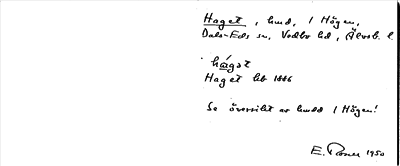 Haget, hmd, i Högen,
Dals-Eds sn, Vedbo hd, Älvsb. l
hágət
Haget hb 1886
Se översikt av hmdd i Högen!
E. Rosell 1950